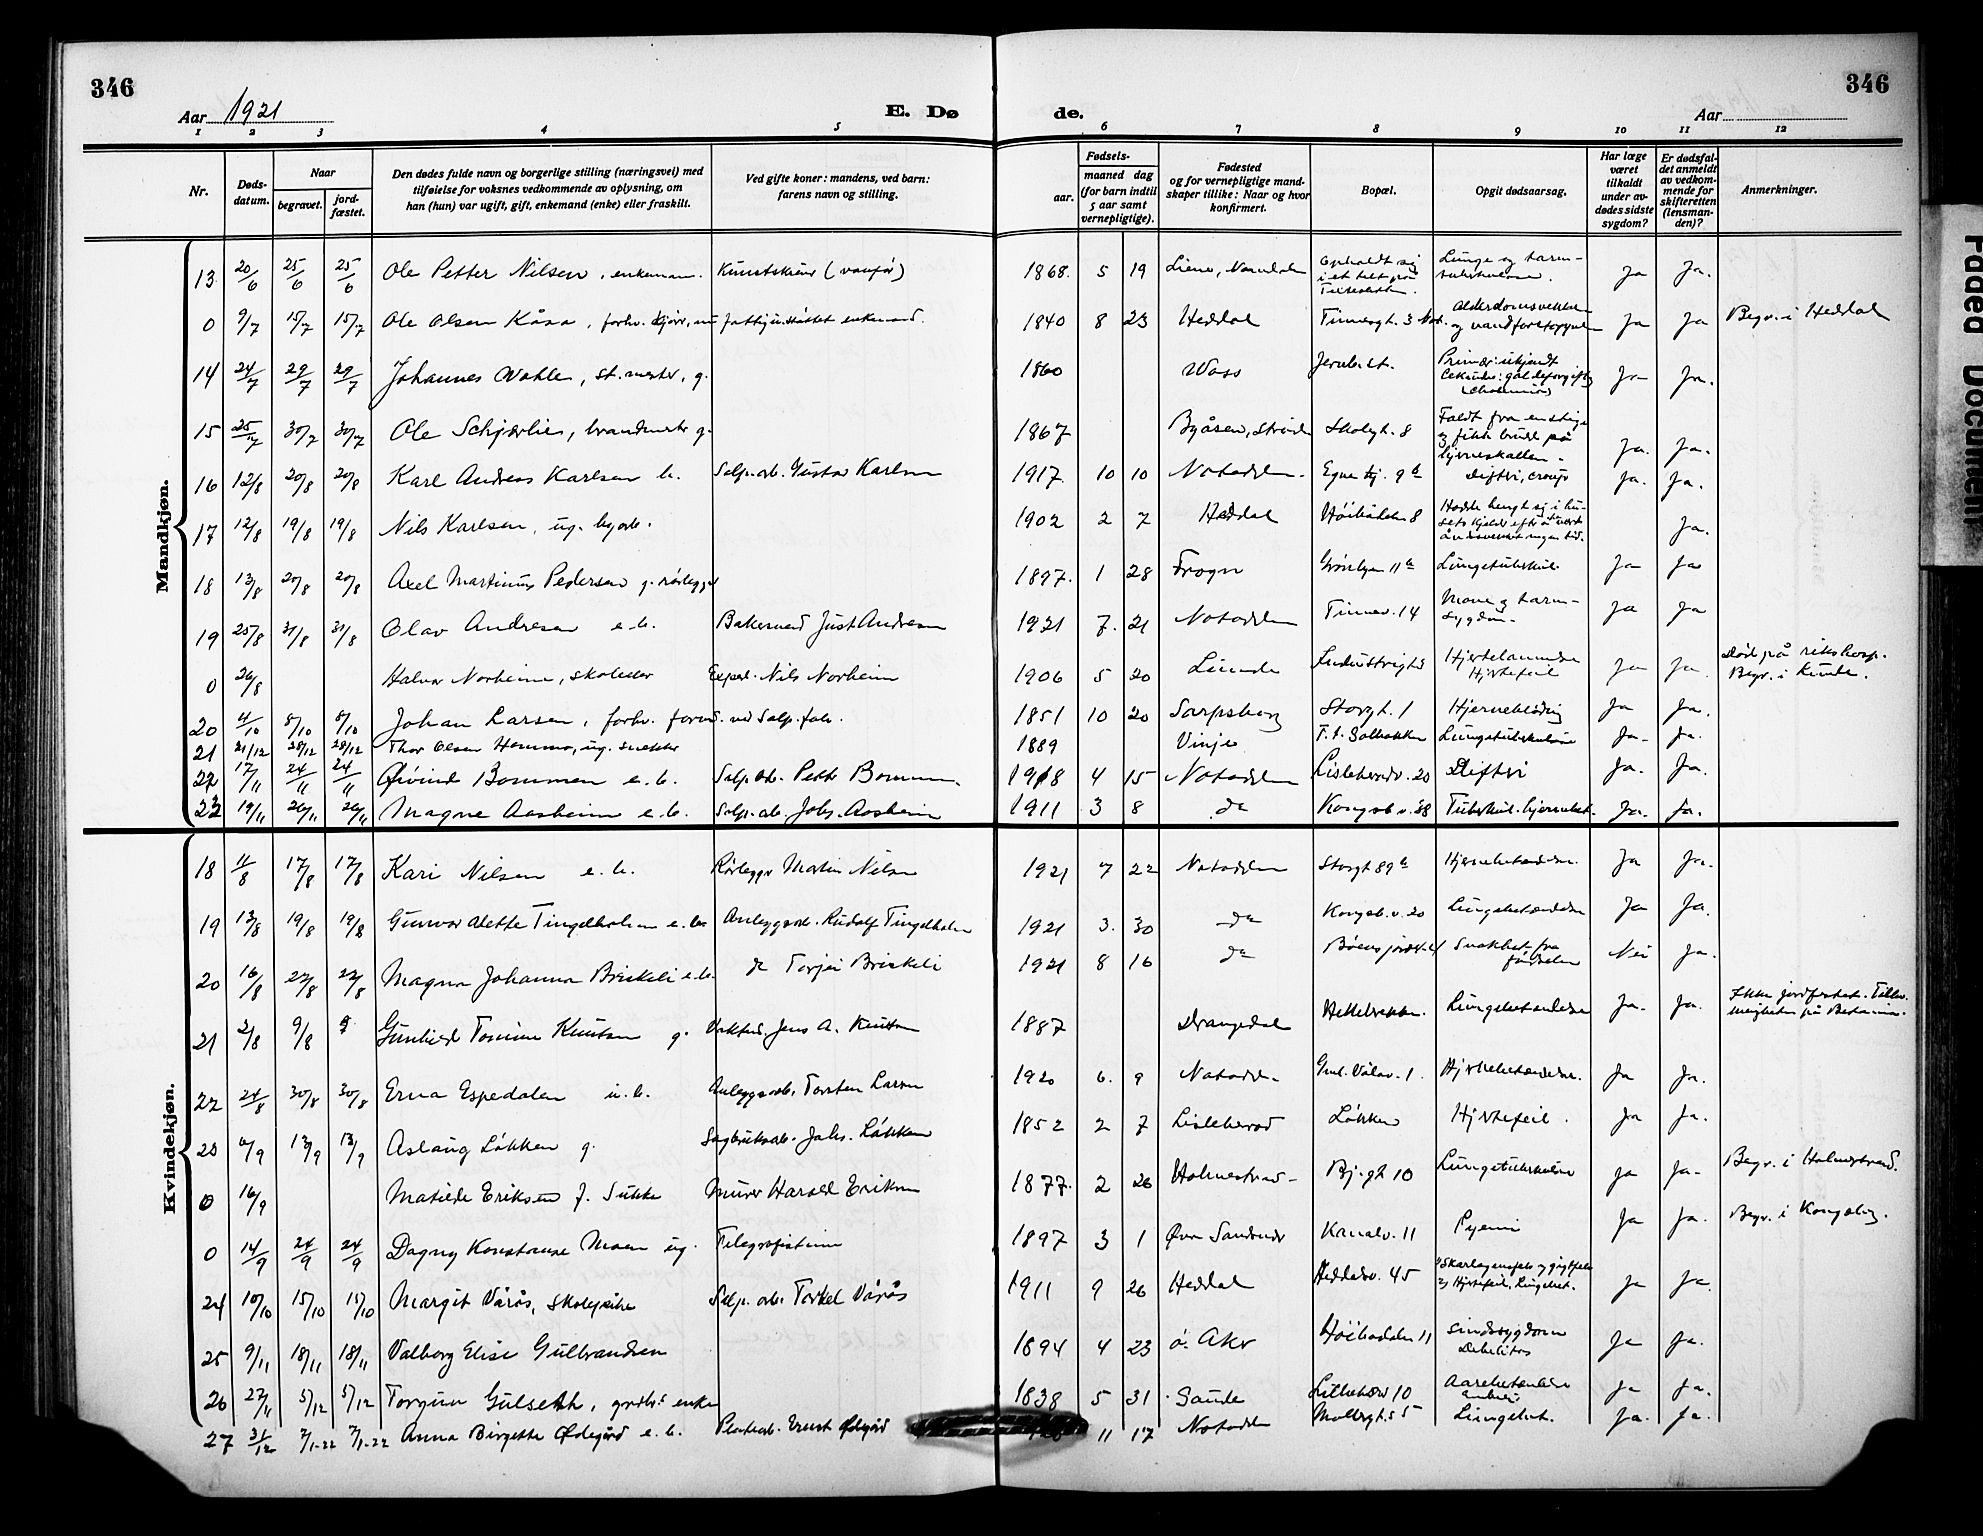 346
346
Aar 1921
E. Dø
de.
Aar
1 2 3 4 5 6 7 8 9 10 11 12
Nr.
Døds-
datum.
Naar
begravet.
jord-
fæstet.
Den dødes fulde navn og borgerlige stilling (næringsvei) med
tilføielse for voksnes vedkommende av oplysning, om
han (hun) var ugift, gift, enkemand (enke) eller fraskilt.
Ved gifte koner: mandens, ved barn:
farens navn og stilling.
Fødsels-
aar.
maaned dag
(for barn indtil
5 aar samt
vernepligtige).
Fødested
og for vernepligtige mand-
skaper tillike: Naar og hvor
konfirmert.
Bopæl.
Opgit dødsaarsag.
Har læge
været
tilkaldt
under av-
dødes sidste
sygdom?
Er dødsfal-
det anmeldt
av vedkom-
mende for
skifteretten
(lensman-
den)?
Anmerkninger.
Mandkjøn.
13 20/6 25/6 25/6 Ole Petter Nilsen, enkeman. 1868. 5 19 Ja Ja.
0 9/7 15/7 15/7 Ole Olsen Kåsa, forhv. 1840 8 23 Heddal Ja Ja Begr. i Heddal
14 24/7 29/7 29/7 Johannes Wahle, st. mester, g. 1860 Woss Ja Ja.
15 25/7 30/7 30/7 Ole Schjærlie, brandmester g. 1867 Byåsen, Strinde Skolegt. 8 Faldt fra en stige
og fikk brudd på
hjerneskallen. Ja. Ja.
16 12/8 20/8 20/8 Karl Andreas Karlsen b. Salp. arb. Gustav Karlsen 1917. 10 10 Notodden. Difteri, croup Ja. Ja.
17 12/8 19/8 19/8 Nils Karlsen, ug. 1902 2 7 Heddal Ja.
18 13/8 20/8 20/8 Axel Martinius Pedersen g. rørlegger 1897. 1 28 Frogn Lungetuberkul. Ja Ja
19 25/8 31/8 31/8 Olav Andresen e.b. Bakersvend Just Andresen 1921 7. 21 Notodden Tinnev. 14 Mave og tarm-
sygdom. Ja Ja
0 26/8 Halvor Norheim, skoleelev Exped. Nils Norheim 1906 5 20 Lunde Hjertefeil Ja Ja Død på rikshosp.
Begr. i Lunde.
20 4/10 8/10 8/10 Johan Larsen, forhv. formd. ved Salp. fab. 1851 10 20 Sarpsborg Storgt. 1 Hjerneblødning Ja Ja.
21 21/12 28/12 28/12 Thor Olsen Hommo, ug. snekker 1889 Vinje Lungetuberkulose Ja. Ja.
22 17/11 24/11 24/11 Øivind Bommen e.b. Salp. arb. Petter Bommen. 1918 4 15 Notodden 20 Difteri Ja. Ja.
23 19/11 26/11 26/11 Magne Aasheim e.b. Salp. arb. Johs. Aasheim 1911 3 8 do Kongsb. v. 38 Tuberkul. hjernebet. Ja. Ja.
Kvindekjøn.
18 11/8 17/8 17/8 Kari Nilsen e.b. Rørlegger Martin Nilsen 1921 7 22 Notodden Storgt 89 b Hjernebetændelse. Ja Ja.
19 13/8 19/8 19/8 Gunvor Alette Tingelholm e.b. Anleggsarb. Rudolf Tingelholm 1921 3. 30 do Kongsb. v. 20 Lungebetændelse Ja Ja.
20 16/8 22/8 22/8 Magna Johanna Briskeli e.b. do Torjei Briskeli 1921 8 16 do Svakhet fra
fødselen Nei Ja.
21 2/8 9/8 Gunhild Tomine Knutsen g. Jens A. Knutsen 1887 Drangedal Lungebetændelse Ja. Ja. Ikke jordfestet.
22 24/8 30/8 30/8 Erna Espedalen u.b. Anleggsarb. Torsten Larsen 1920 6. 9 Notodden Ja Ja.
23 6/9 13/9 13/9 Aslaug Løkken g. Sagbruksarb. Johs. Løkken 1852 2 7 Lisleherad Løkken Hjertefeil. Ja Ja.
0 16/9 Matilde Eriksen f. Sukke Murer Harald Eriksen 1877. 2 26 Holmestrand 10 Lungetuberkulose Ja Ja. Begr. i Holmestrand.
0 14/9 24/9 24/9 Dagny Konstanse Moen ug. Telegrafistinne 1897 3 1 Øvre Sandsvær Kanalv. 11 Pyemi Ja Ja. Begr. i Kongsberg.
24 10/10 15/10 15/10 Margit Vårås, skolepike Salp. arb. Torkel Vårås 1911 9 26 Heddal Heddalsv. 45 Ja Ja.
25 9/11 18/11 18/11 Valborg Elise Gulbrandsen 1894 4 23 ø. Aker 11 Sindssygdom
Debilitas Ja Ja.
26 27/11 5/12 5/12 Torgun Gulseth, enke 1838 5 31 Saude 10 Ja Ja.
27 31/12 7/1-22 7/1-22 Anna Birgette Ødegård e.b. Ødegård 11 17 Notodden Lungebet. Ja. Ja.
Faded Document